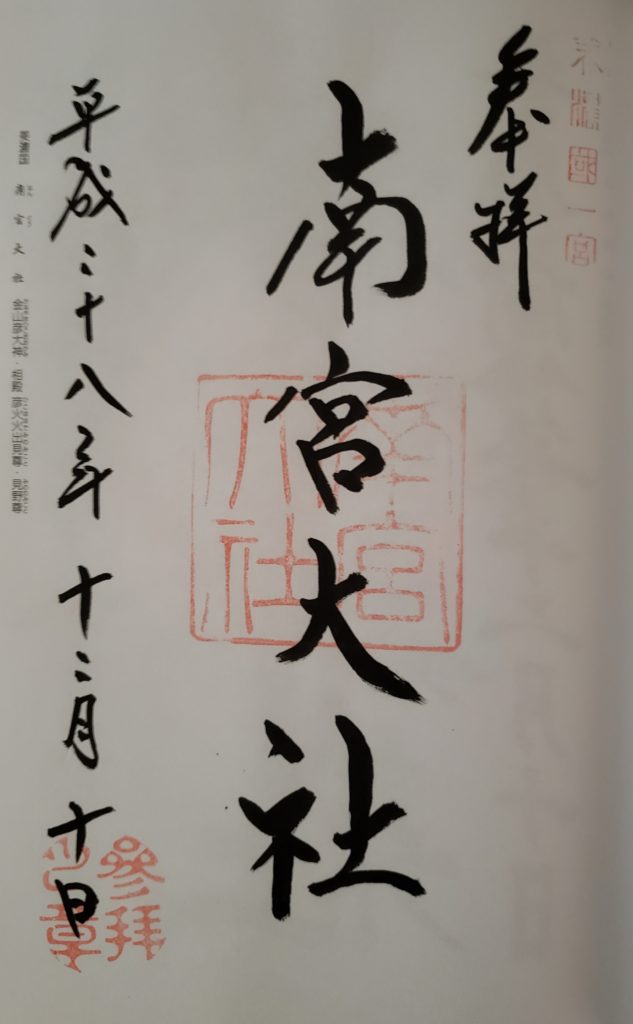 美濃國一宮
奉拝
南宮大社
南宮大社
平成二十八年十二月十日
参拝
美濃国 南宮大社 金山彦大神・相殿 彦火火出見尊・見野尊